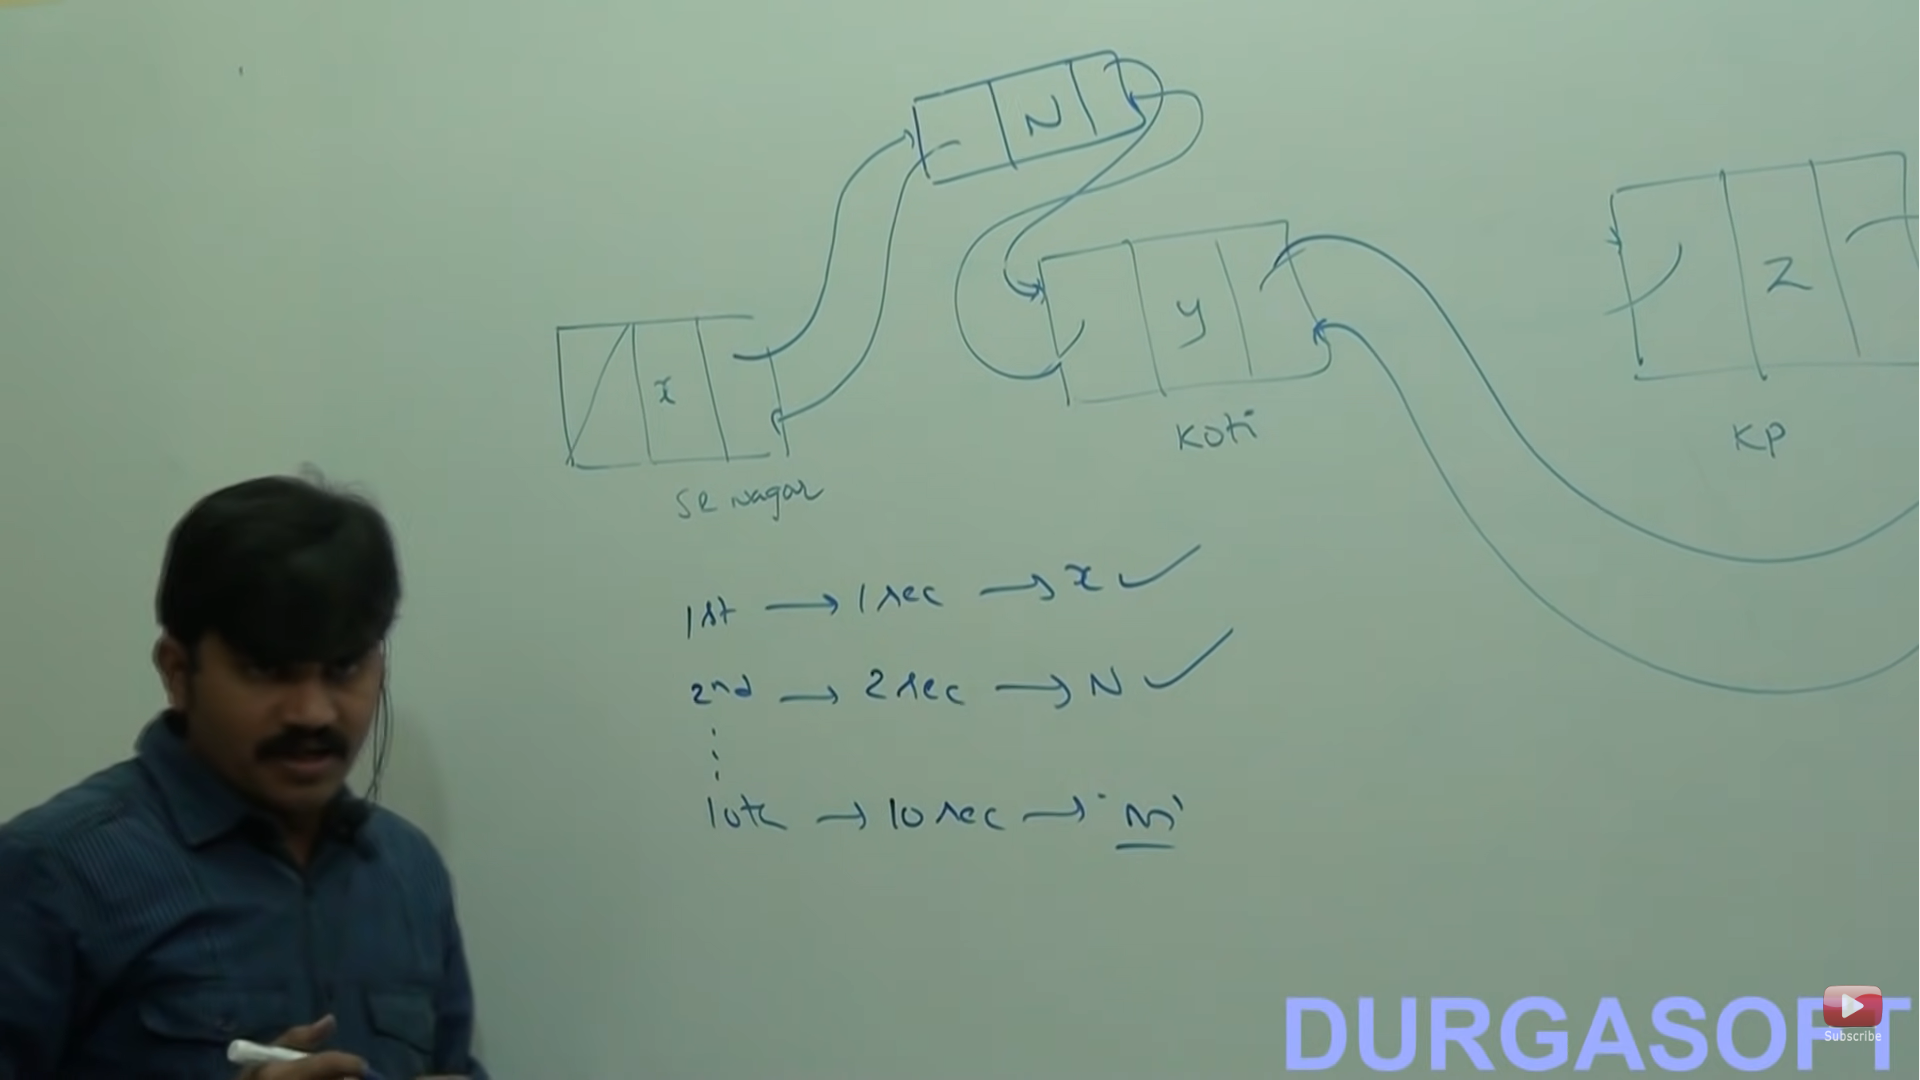 N
x
y
z
SR Nagar
Koti
KP
1st → 1 sec → x ✓
2nd → 2 sec → N ✓
10th → 10 sec → 'M'
DURGASOFT
Subscribe